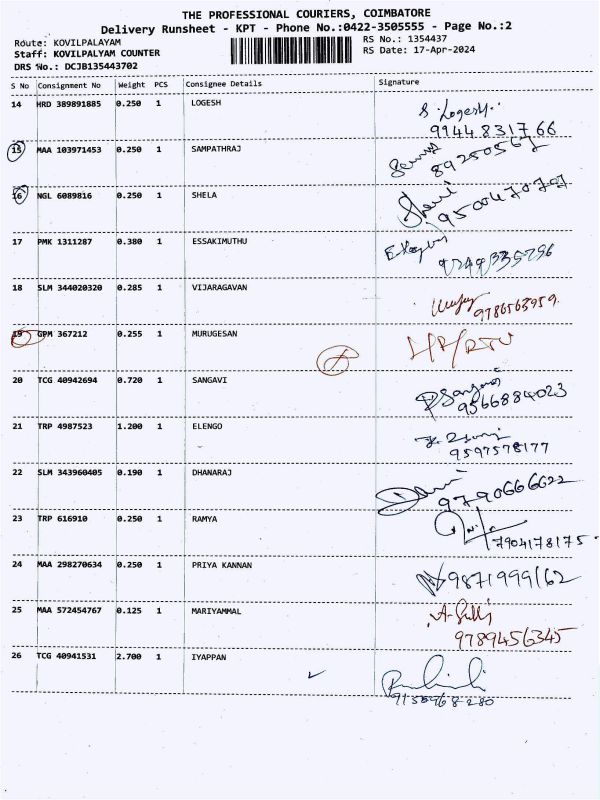 THE PROFESSIONAL COURIERS, COIMBATORE
Delivery Runsheet - KPT - Phone No.:0422-3505555 - Page No.:2
Route: KOVILPALAYAM RS No.: 1354437
Staff: KOVILPALYAM COUNTER RS Date: 17-Apr-2024
DRS No.: DCJB135443702
S No Consignment No Weight PCS Consignee Details Signature
14 HRD 389891885 0.250 1 LOGESH S. Logesh
9944831766
15 MAA 103971453 0.250 1 SAMPATHRAJ
89250567
16 NGL 6089816 0.250 1 SHELA
17 PMK 1311287 0.380 1 ESSAKIMUTHU
18 SLM 344020320 0.285 1 VIJARAGAVAN
9786563959.
19 GPM 367212 0.255 1 MURUGESAN
20 TCG 40942694 0.720 1 SANGAVI
9566884023
21 TRP 4987523 1.200 1 ELENGO
9597578177
22 SLM 343960405 0.190 1 DHANARAJ
9790666622
23 TRP 616910 0.250 1 RAMYA
7904178175
24 MAA 298270634 0.250 1 PRIYA KANNAN 9871999162
25 MAA 572454767 0.125 1 MARIYAMMAL
9789456345
26 TCG 40941531 2.700 1 IYAPPAN